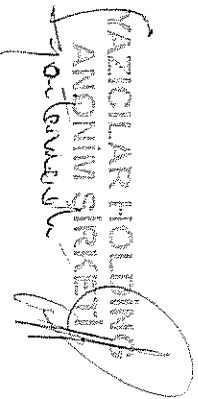 YAZICILAR HOLDING
ANONİM ŞİRKETİ